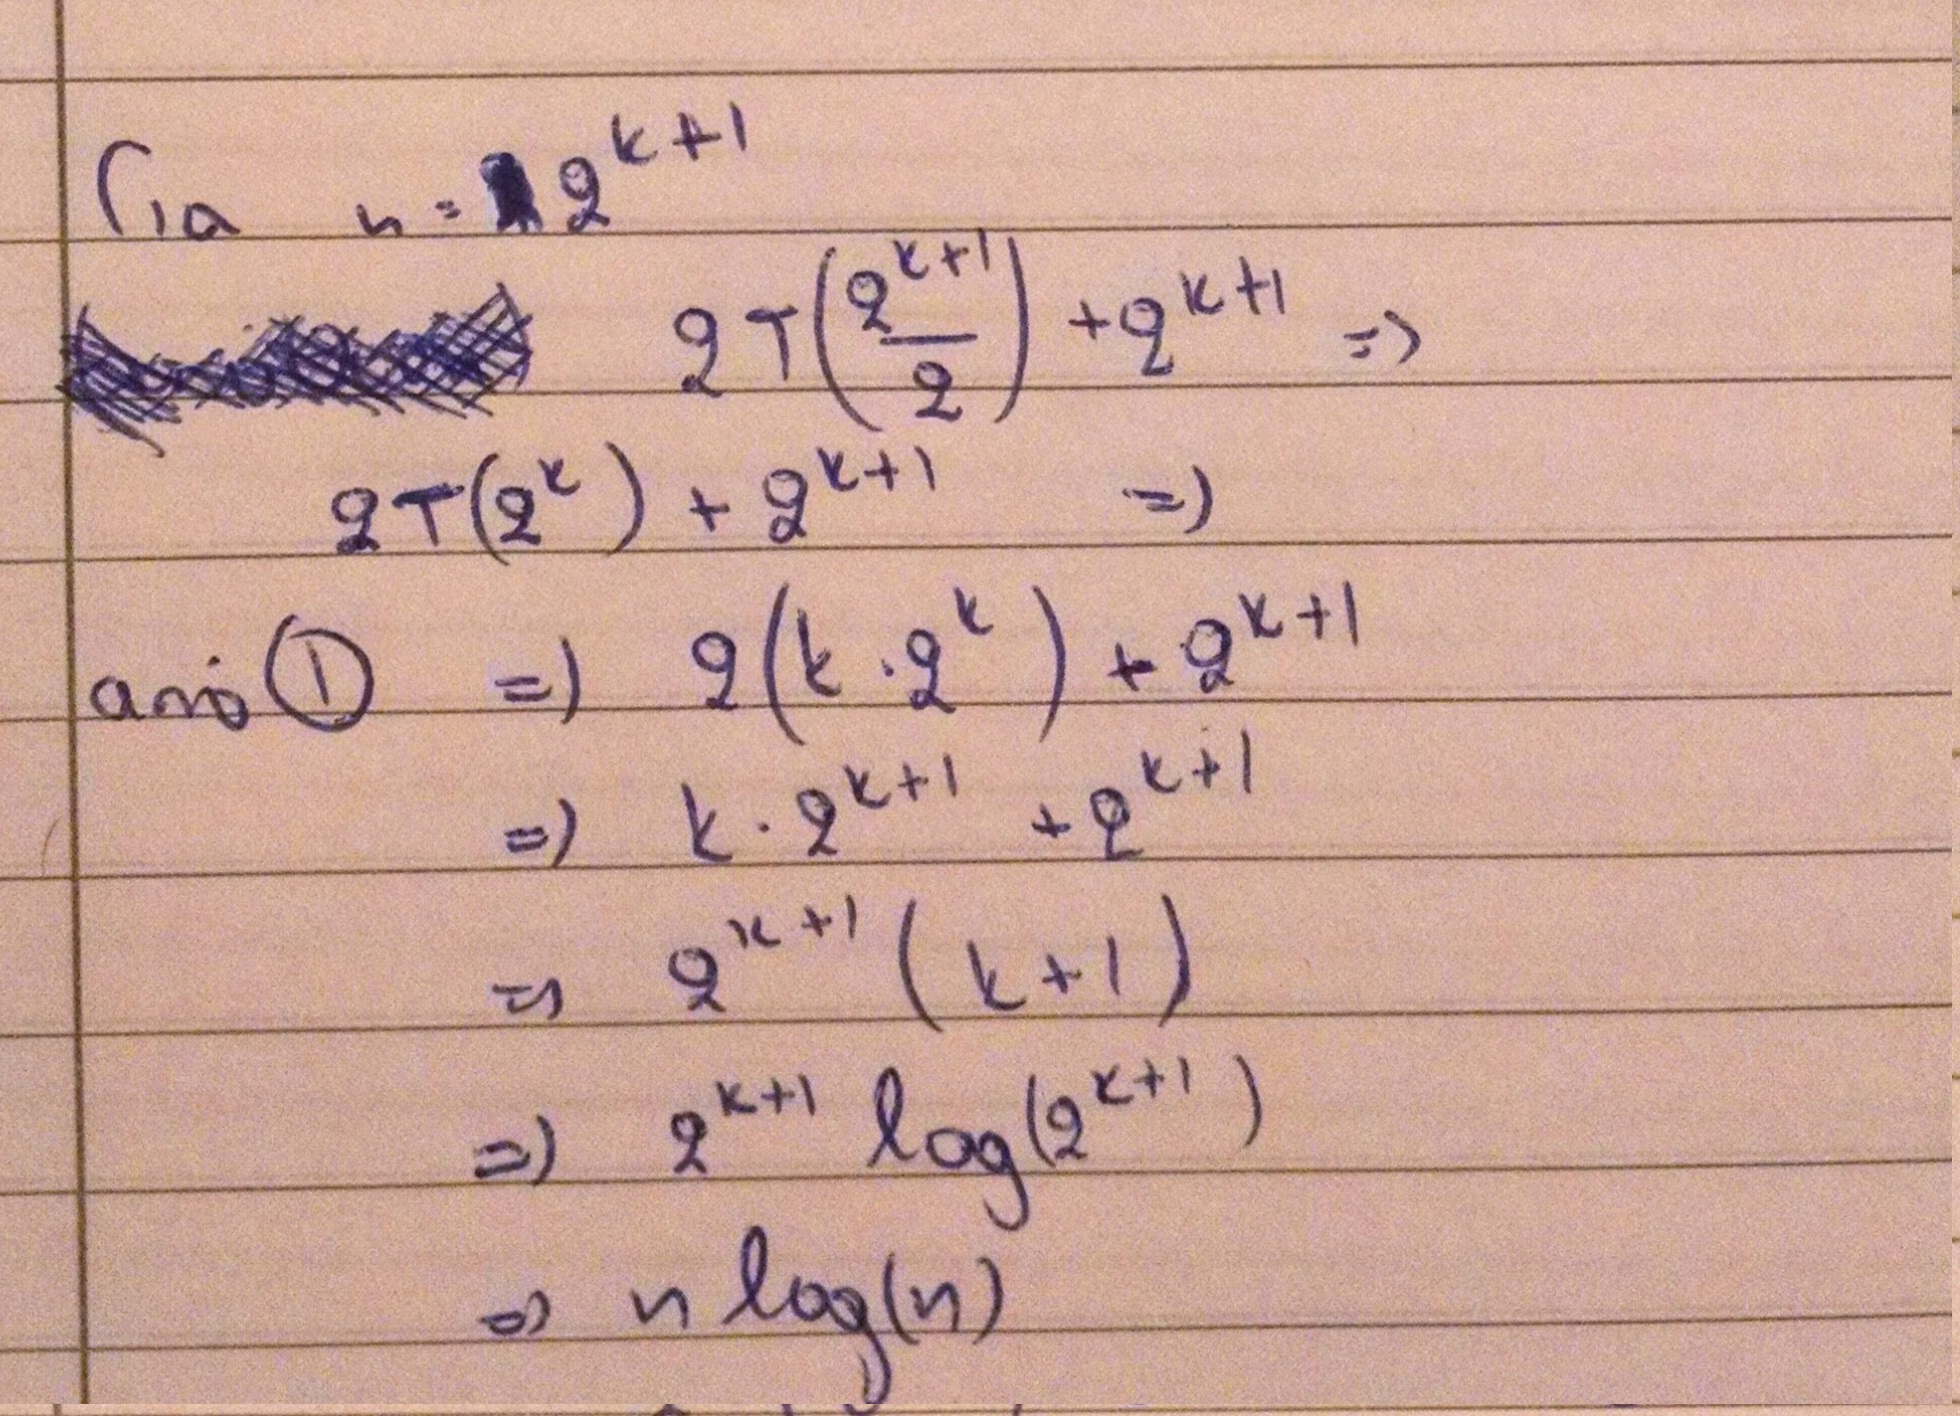 Για n = 2^{k+1}
2T(2^{k+1}/2) + 2^{k+1} =>
2T(2^k) + 2^{k+1} =>
από ① => 2(k·2^k) + 2^{k+1}
=> k·2^{k+1} + 2^{k+1}
=> 2^{k+1}(k+1)
=> 2^{k+1} log(2^{k+1})
=> n log(n)